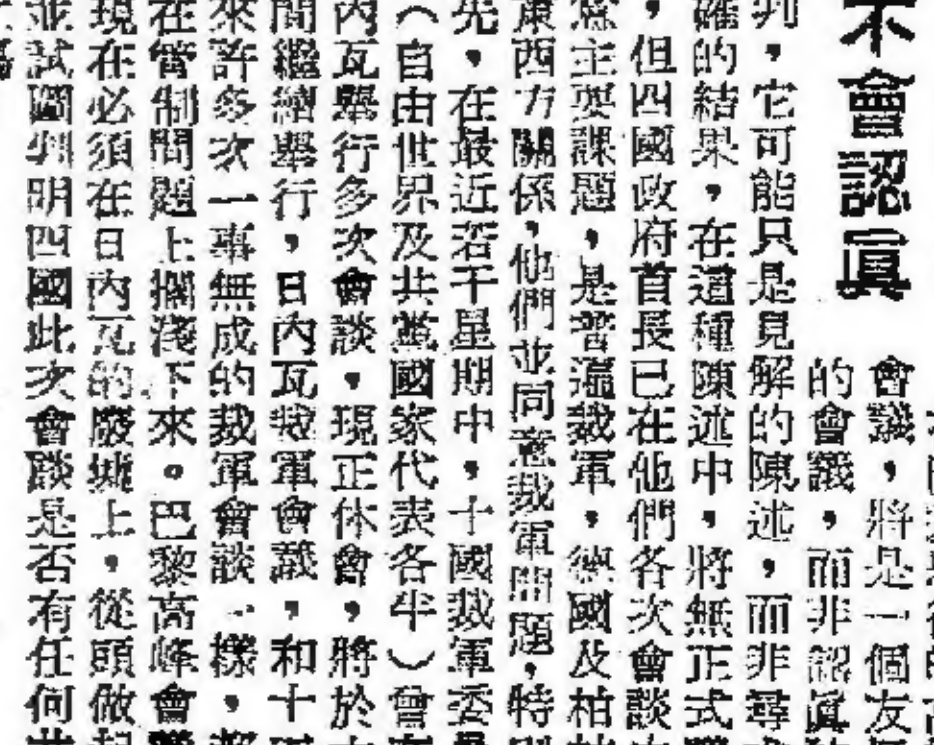 不會認真
會議，將是一個友
的會議，而非認真
判，它可能只是見解的陳述，而非尋
確的結果，在這種陳述中，將無正式
，但四國政府首長已在他們各次會談
為主要課題，是普遍裁軍，德國及柏
東西方關係，他們並同意裁軍問題，特別
先，在最近若干星期中，十國裁軍委
（自由世界及共黨國家代表各半）曾在
內瓦舉行多次會談，現正休會，將於
間繼續舉行，日內瓦裁軍會議，和十
來許多次一事無成的裁軍會談一樣，都
在管制問題上擱淺下來。巴黎高峰會
現在必須在日內瓦的廢墟上，從頭做起
並試圖判明四國此次會談是否有任何